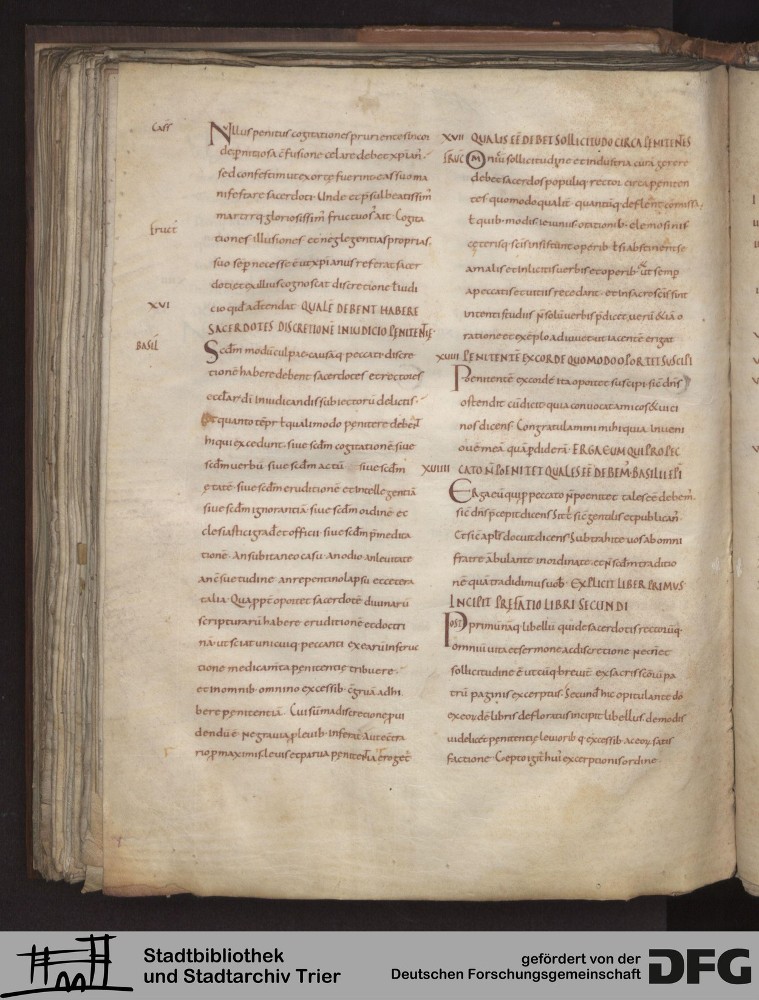 Cass
Nullus penitus cogitationes prurientes uicor
de perniciosa c̄fusione celare debet xp̄ian̄.
sed confestim ut exortę fuerint eas suo ma
nifestare sacerdoti. Unde et p̄sul beatissim̄
martirq; gloriosissim̄ fructuos ait. Cogita
Fruct
tiones illusiones et neglegentias proprias.
suo sep necesse ē ut xpianus referat sacer
doti. et ex illius cognoscat discretione t iudi
XVI
cio quid ad tendat. QUALĒ DEBENT HABERE
SACERDOTES DISCRETIONĒ IN IUDICIO PENITENTIĘ
BASIL
Scdm̄ modū culpae causāq; peccati discre
tionē habere debent sacerdotes et rectores
eccl̄ar̄ d̄i in iudicandis subiectorū delictis.
Et quanto tēpr̄ t quali modo penitere debent
hi qui excedunt. siue scdm̄ cogitationē siue
scdm̄ uerbū siue scdm̄ actū siue scdm̄
ętatē siue scdm̄ eruditionē et intellegentiā
siue scdm̄ ignorantiā siue scdm̄ ordinē et
clesiastici gradus et officii siue scdm̄ p̄medita
tionē. An subitaneo casu. An odio an leuitate
an c̄suetudine an repentino lapsu et cetera
talia. Quapp̄t oportet sacerdotē diuinarū
scripturarū habere eruditionē et doctri
nā. ut sciat unicuiq; peccanti ex earū instruc
tione medicam̄ta penitentię tribuere.
et in omnib. omnino excessib. c̄gruā adhi
bere penitentiā. Cui sūma discretione p̄ui
dendū ē. Ne grauia p̄ leuib. inferat aut ec̄tra
rio p̄ maximis. leuis et parua penitentia eroget̄
XVII QUALIS EĒ DEBET SOLLICITUDO CIRCA PENITENTES
FRUC Omniū sollicitudinē et industria curā gerere
debet sacerdos populiq; rector circa peniten
tes. quomodo qualit̄ quantūq; defleant com̄issa.
t quib. modis ieiuniis orationib. elemosinis
ceterisq; sc̄is insistunt operib. t si abstinent se
a malis et inlicitis uerbis et operib. ut semp
a peccatis et uitiis recedant. et in sacro sc̄is sint
intenti studiis. n̄ solū uerbis p̄dicet. uerū &iā o
ratione et exēplo adiuuet ut iacentē erigat
XVIII PENITENTĒ EX CORDE QUOMODO OPORTET SUSCIPI
Poenitentē ex cordē ita oportet suscipi. sic̄ dn̄s
ostendit cū dicit. quia conuocat amicos & uici
nos dicens. Congratulamini mihi quia inueni
ouē meā quā p̄diderā. ERGA EUM QUI PRO PEC
XVIIII CATO N̄ POENITET QUALES EĒ DEBEM̄. BASILII EP̄I
Erga eū qui p̄ peccato n̄ poenitet tales eē debem̄.
sic̄ dn̄s p̄cepit dicens. Sit t̄ sic̄ gentilis et publican̄.
Et sic̄ apl̄s docuit dicens. Subtrahite uos ab omni
fratre ābulante inordinate. et n̄ scdm̄ traditio
nē quā tradidimus uob̄. EXPLICIT LIBER PRIMUS
INCIPIT PREFATIO LIBRI SECUNDI
Post primū naq; libellū qui de sacerdotis rectorūq;
omniū uita et sermone ac discretione nec n̄ et
sollicitudine ē utcūq; breuit̄ ex sacris scōrū pa
trū paginis excerptus. Secund̄ hic opitulante d̄o
ex eorūdē libris defloratus incipit libellus. de modis
uidelicet penitentię leuiorib. q̄; excessib. ac eorū satis
factione. Cepto igit̄ hui excerptionis ordine.
Stadtbibliothek
und Stadtarchiv Trier
gefördert von der
Deutschen Forschungsgemeinschaft
DFG